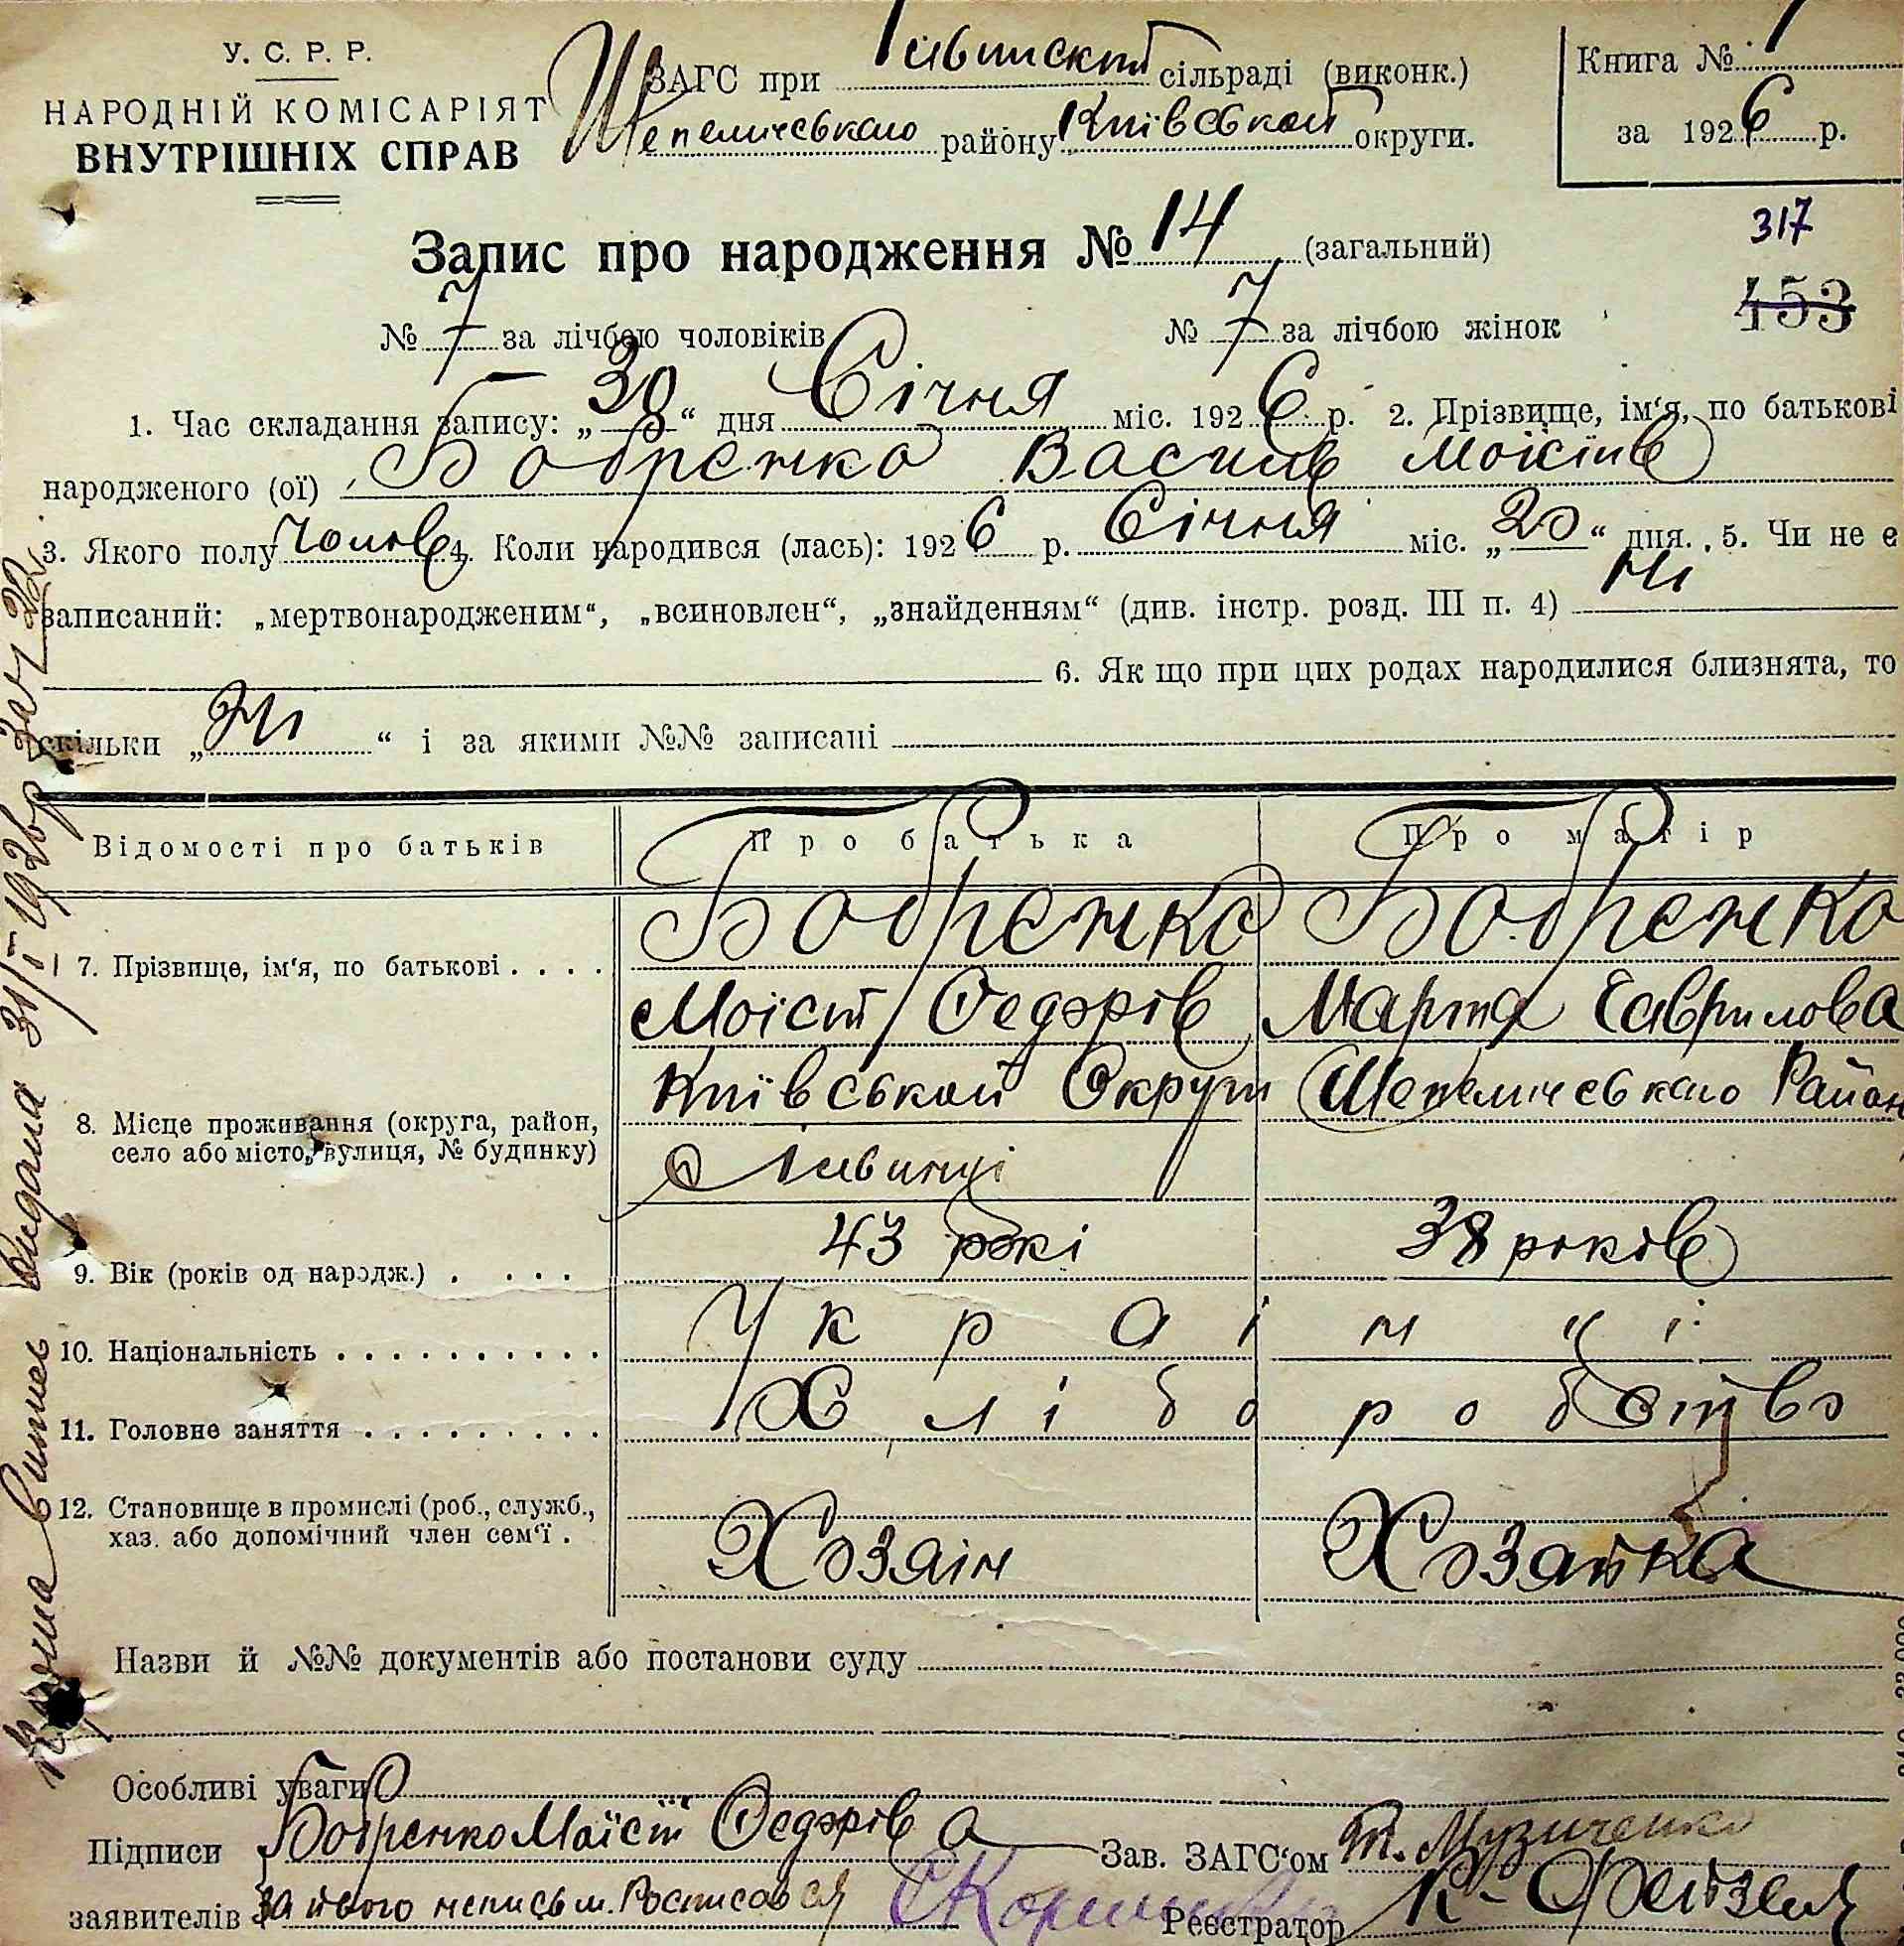 У. С. Р. Р.
НАРОДНІЙ КОМІСАРІЯТ
ВНУТРІШНІХ СПРАВ
ЗАГС при сільраді (виконк.)
Шепеличського району Київськой округи.
Книга №
за 1926 р.
317
453
Запис про народження № 14 (загальний)
№ 7 за лічбою чоловіків № 7 за лічбою жінок
1. Час складання запису: „30“ дня Січня міс. 1926 р. 2. Прізвище, ім‘я, по батькові
народженого (ої) Бобренко Василь Моісіїв
3. Якого полу Чолов 4. Коли народився (лась): 1926 р. Січня міс. „20“ дня. 5. Чи не є
записаний: „мертвонародженим“, „всиновлен“, „знайденням“ (див. інстр. розд. III п. 4) Ні
6. Як що при цих родах народилися близнята, то
скільки „Ні“ і за якими №№ записані
Відомості про батьків Про батька Про матір
7. Прізвище, ім‘я, по батькові . . . . Бобренко Бобренко
Моісій Федорів Марта Гаврилова
Київськой Округи Шепеличського Район
8. Місце проживання (округа, район,
село або місто, вулиця, № будинку)
9. Вік (років од народж.) . . . . 43 рокі 38 років
10. Національність . . . . . . . . . . . Українці
11. Головне заняття . . . . . . . . . . Хліборобство
12. Становище в промислі (роб., служб.,
хаз. або допомічний член сем‘ї .
Хозаін Хозайка
Назви й №№ документів або постанови суду
Особливі уваги
Підписи Бобренко Моїсій Федорів а Зав. ЗАГС‘ом Т. Музиченко
заявителів За його неписьм. Росписався Реєстратор К-
Видана 31/I 1926р